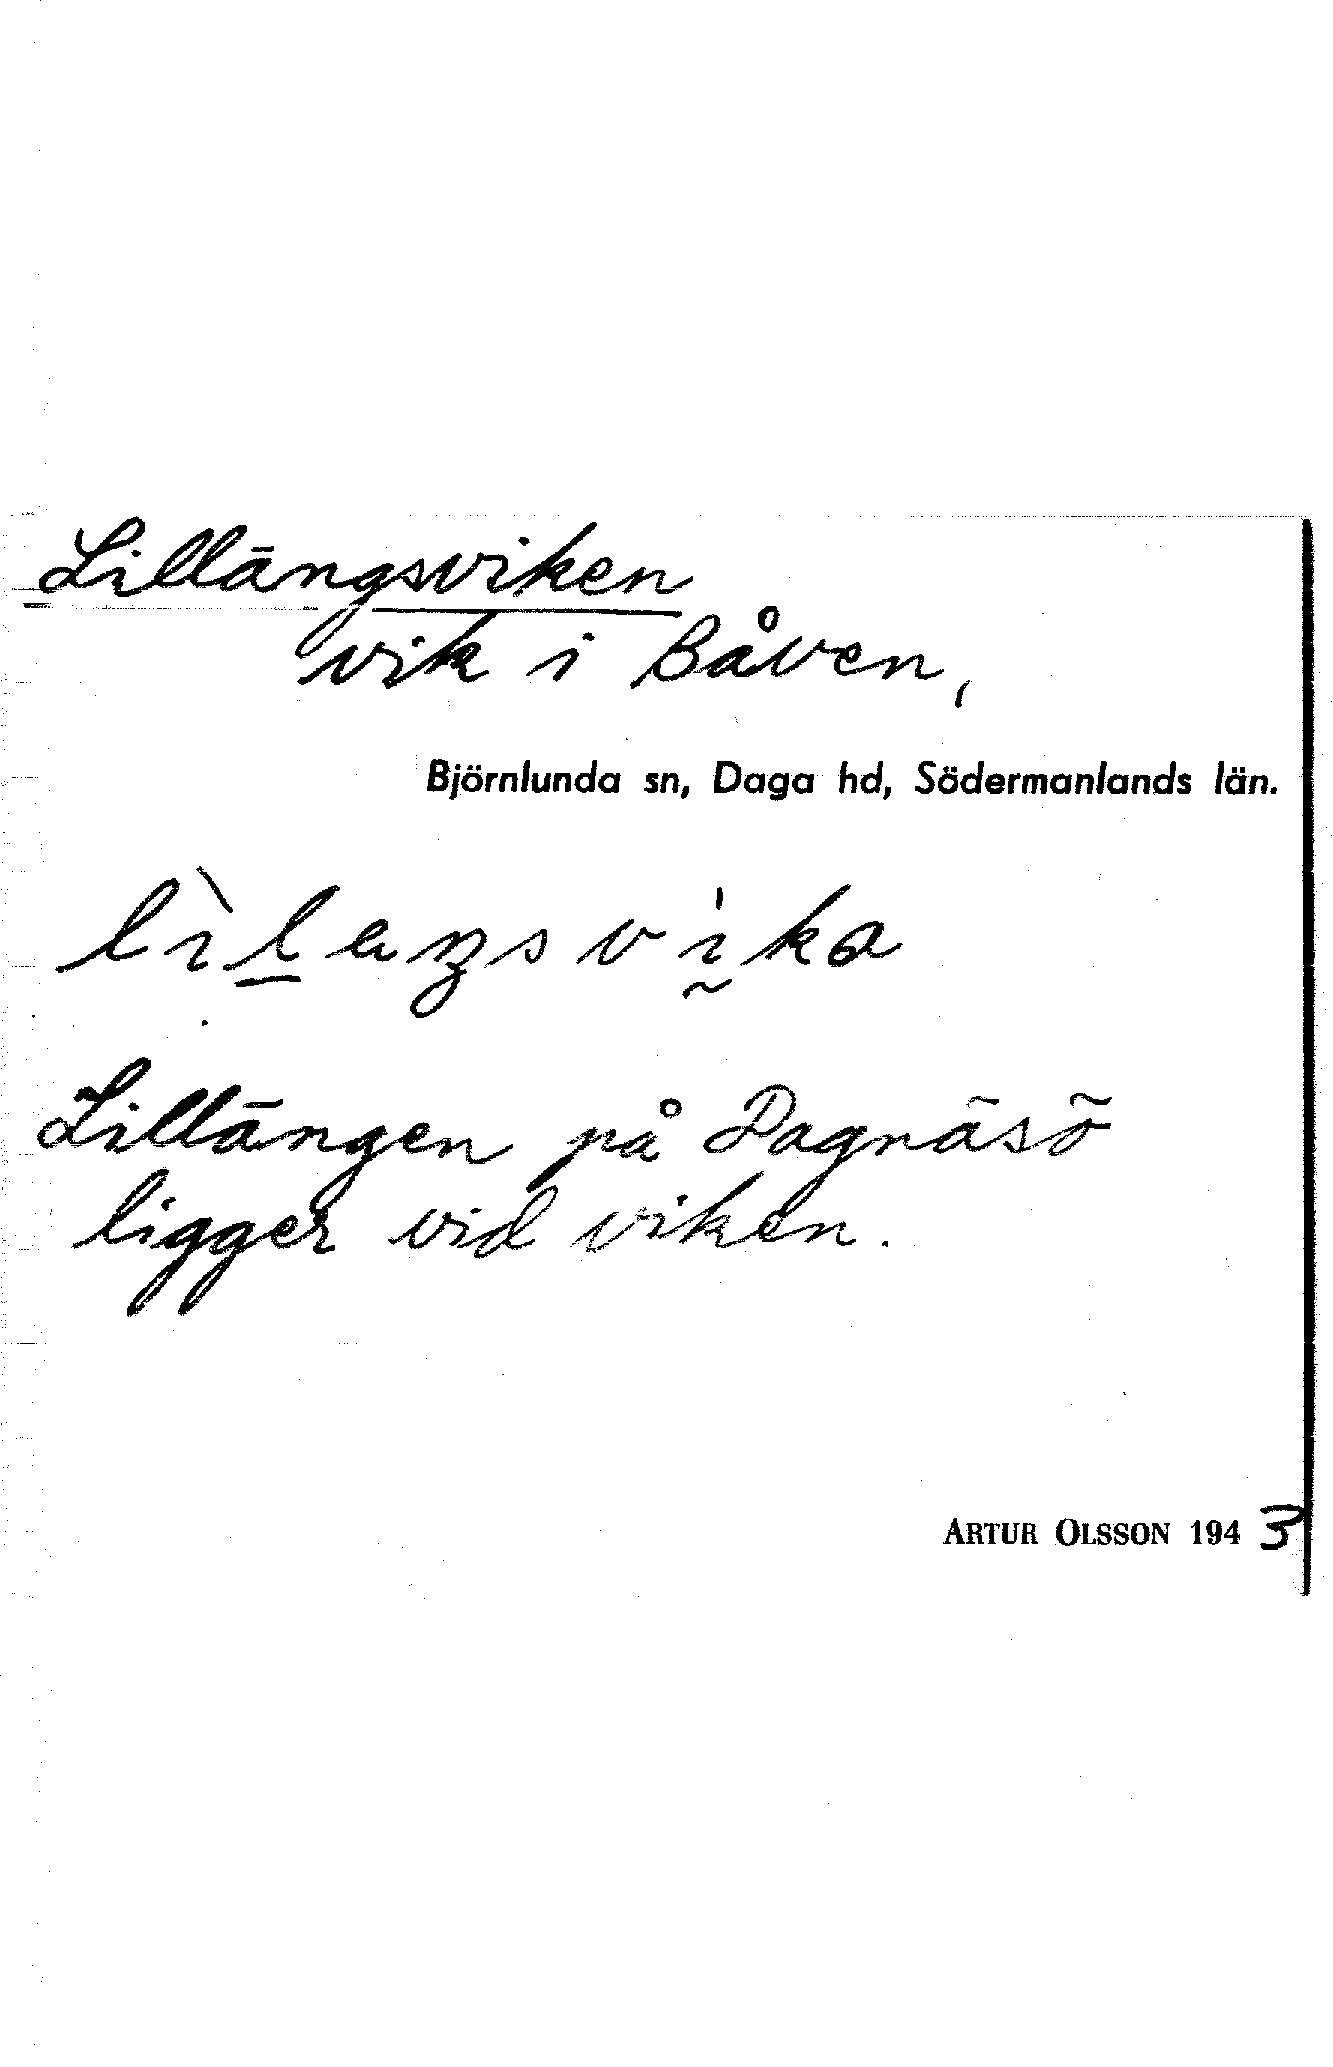 Lillängsviken
vik i Båven,
Björnlunda sn, Daga hd, Södermanlands län.
lìlaŋsvika
Lillängen på Dagnäsö
ligger vid viken.
ARTUR OLSSON 1943